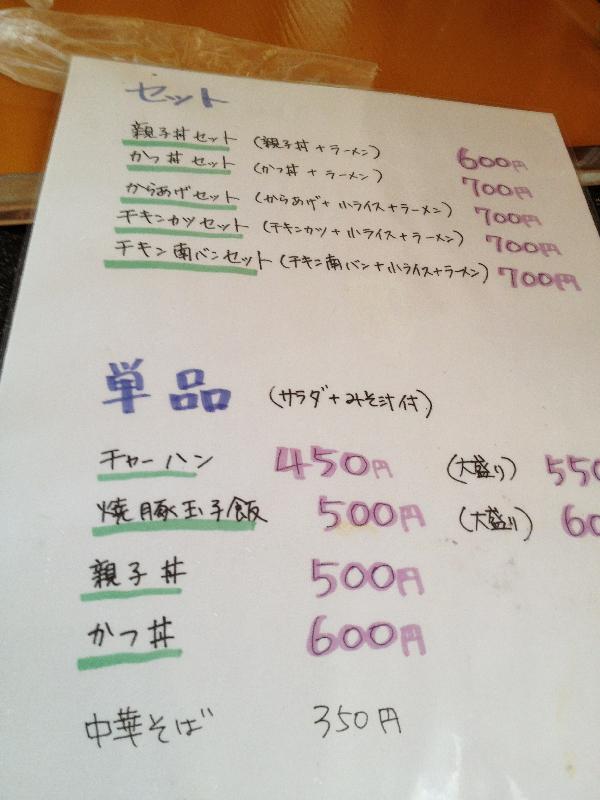 セット
親子丼セット (親子丼+ラーメン) 600円
かつ丼セット (かつ丼+ラーメン) 700円
からあげセット (からあげ+小ライス+ラーメン) 700円
チキンカツセット (チキンカツ+小ライス+ラーメン) 700円
チキン南バンセット (チキン南バン+小ライス+ラーメン) 700円
単品 (サラダ+みそ汁付)
チャーハン 450円 (大盛り) 550
焼豚玉子飯 500円 (大盛り) 60
親子丼 500円
かつ丼 600円
中華そば 350円